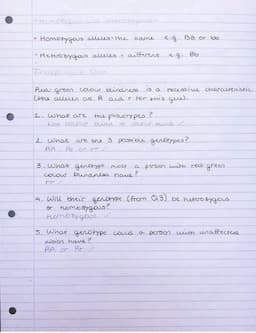 Homozygous and Heterozygous
• Homozygous alleles: the same e.g. BB or bb
• Heterozygous alleles: different e.g. Bb
Red green colour blindness is a recessive characteristic
(the alleles are R and r for this gene).
1. What are the phenotypes?
2. What are the 3 possible genotypes?
RR, Rr or rr ✓
3. What genotype must a person with red green
colour blindness have?
rr ✓
4. Will their genotype (from Q3) be heterozygous
or homozygous?
Homozygous ✓
5. What genotype could a person with unaffected
vision have?
RR or Rr ✓